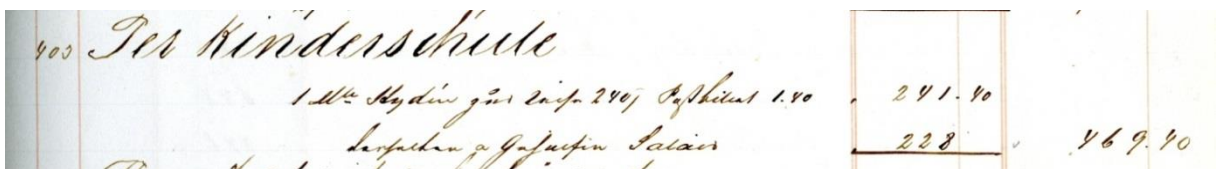 403 Per Kinderschule
1 Mlle Rydin zur Reise 240, Paßbillet 1.40 241.40
derselben a Gehülfin Salair 228 469.40